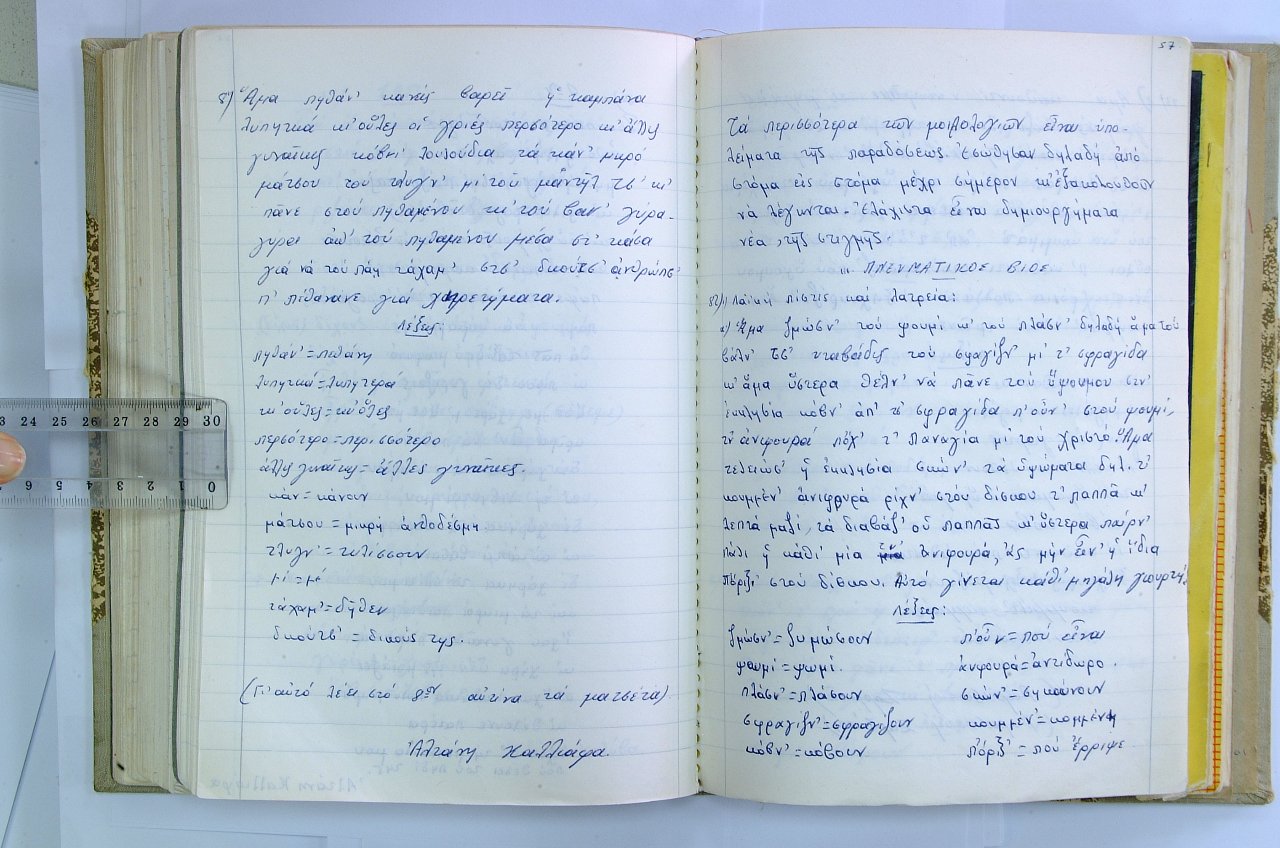 8') Ἅμα πηθάν' κανείς βαρεῖ ἡ καμπάνα
λυπητικά κ' οὖλες οἱ γριές περσότερο κ' ἄλλις
γυναῖκις κόβνι λουλούδια τά κάν' μικρό
μάτσου τού τλυγν' μί τού μαντήλ τσ' κ'
πᾶνε στού πηθαμένου κι τού βαν' γύρα-
γυροι ἀπ' τού πηθαμένου μέσα στ' κάσα
γιά νά τού πάη τάχαμ' στσ' δικούτσ' ἀνθρώπσ'
π' πίθανανε γιά χαιρετήματα.
Λέξεις
πηθάν' = πεθάνη
λυπητικά = λυπητερά
κι οὖλες = κι ὅλες
περσότερο = περισσότερο
ἄλλις γυναῖκις = ἄλλες γυναῖκες.
κάν = κάνουν
μάτσου = μικρή ἀνθοδέσμη
τλυγν' = τυλίσσουν
μί = μέ
τάχαμ' = δῆθεν
δικούτσ' = δικούς της.
(Γι' αὐτό λέει στό 8ον αὐτινα τά ματσέτα).
Ἀλτάνη Καλλιάφα.
57
Τά περισσότερα τῶν μοιρολογιῶν εἶναι ὑπο-
λείματα τῆς παραδόσεως. Ἐσώθησαν δηλαδή ἀπό
στόμα εἰς στόμα μέχρι σήμερον κ' ἐξακολουθοῦν
νά λέγωνται. Ἐλάχιστα εἶναι δημιουργήματα
νέα, τῆς στιγμῆς.
ΠΝΕΥΜΑΤΙΚΟΣ ΒΙΟΣ
Λαϊκή πίστις καί λατρεία:
α) Ἅμα ζμώσν' τού ψουμί κ' τού πλάσν' δηλαδή ἅμα τού
βάλν' τσ' νταβάδις τού σφραγίζν' μί τ' σφραγίδα
κ' ἅμα ὕστερα θέλν' νά πᾶνε τού ὕψουμου στν'
ἐκκλησία κόβν' ἀπ' τσ' σφραγίδα π' οὖν' στού ψουμί,
τν' ἀνιφουρά πὄχ' τ' Παναγία μί τού χριστό. Ἅμα
τελειώσ' ἡ ἐκκλησία σκών' τά ὑψώματα δηλ. τ'
κουμμέν' ἀνιφουρά ρίχν' στόν δίσκου τ' παππᾶ κ'
λεπτά μαζί, τά διαβάζ' οὑ παππᾶς κ' ὕστερα παίρν'
πάλι ἡ κάθι μία ἀνιφουρά, ἄς μήν εἶν' ἡ ἴδια
πὄριξι στού δίσκου. Αὐτό γίνεται κάθι μηγάλη γιουρτή.
Λέξεις:
ζμώσν' = ζυμώσουν	π' οὖν = πού εἶναι
ψουμί = ψωμί.	ἀνιφουρά = ἀντίδωρο.
πλάσν' = πλάσουν	σκών' = σηκώνουν
σφραγίζν' = σφραγίζουν	κουμμέν' = κομμένη
κόβν' = κόβουν	πὄριξ' = πού ἔρριψε